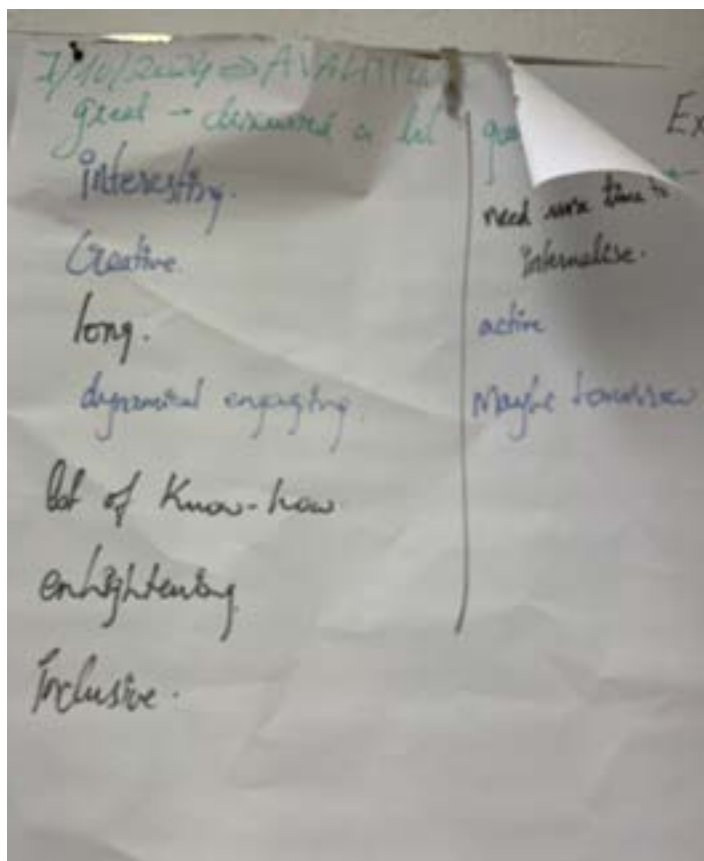 7/10/2024 ⇒
great - discussed a lot
interesting.
Creative
long.
dynamical engaging.
lot of Know-how
enlightening
Inclusive.
Ex
need more time to
internalise.
active
Maybe tomorrow